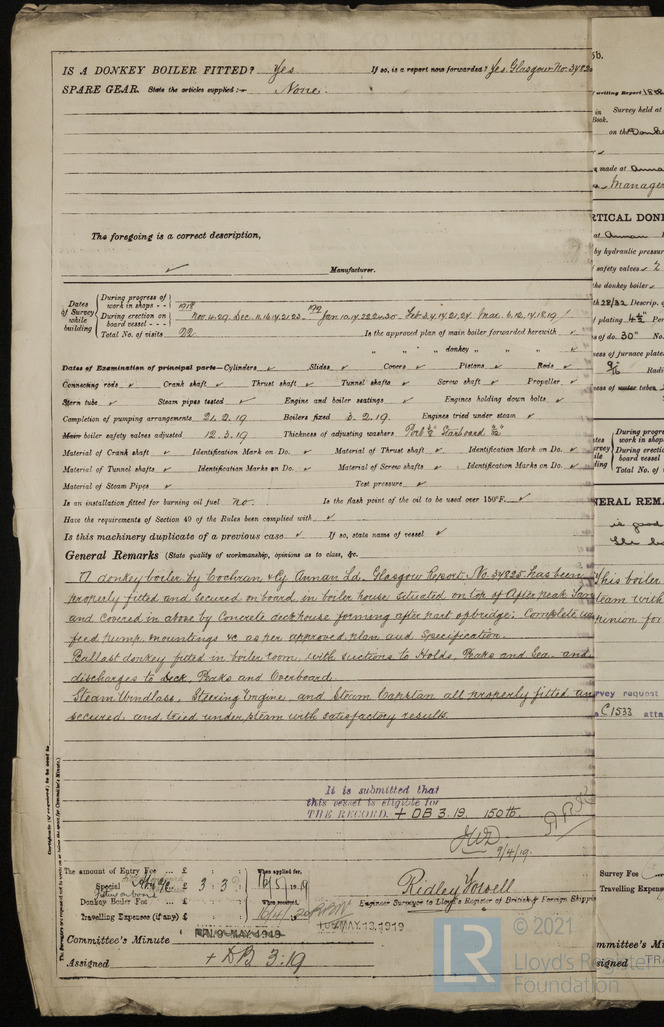 IS A DONKEY BOILER FITTED? Yes If so, is a report now forwarded? Yes. Glasgow No. 34825
SPARE GEAR. State the articles supplied :— None.
The foregoing is a correct description,
✓ Manufacturer.
Dates of Survey while building
During progress of work in shops - - 1918
During erection on board vessel - - - Nov. 4. 29. Dec. 11. 16. 17. 22. 23. 1919 Jan. 10. 17. 22. 24. 30. Feb. 3. 4. 17. 21. 24. Mar. 6. 12. 14. 18. 19.
Total No. of visits 22 Is the approved plan of main boiler forwarded herewith ✓
" " " donkey " " ✓
Dates of Examination of principal parts—Cylinders ✓ Slides ✓ Covers ✓ Pistons ✓ Rods ✓
Connecting rods ✓ Crank shaft ✓ Thrust shaft ✓ Tunnel shafts ✓ Screw shaft ✓ Propeller ✓
Stern tube ✓ Steam pipes tested ✓ Engine and boiler seatings ✓ Engines holding down bolts ✓
Completion of pumping arrangements 21. 2. 19 Boilers fixed 3. 2. 19. Engines tried under steam ✓
Main boiler safety valves adjusted 12. 3. 19 Thickness of adjusting washers Port Starboard
Material of Crank shaft ✓ Identification Mark on Do. ✓ Material of Thrust shaft ✓ Identification Mark on Do. ✓
Material of Tunnel shafts ✓ Identification Marks on Do. ✓ Material of Screw shafts ✓ Identification Marks on Do. ✓
Material of Steam Pipes ✓ Test pressure ✓
Is an installation fitted for burning oil fuel no. Is the flash point of the oil to be used over 150°F. ✓
Have the requirements of Section 49 of the Rules been complied with ✓
Is this machinery duplicate of a previous case ✓ If so, state name of vessel ✓
General Remarks (State quality of workmanship, opinions as to class, &c.
A donkey boiler by Cochran & Cy Annan Ld. Glasgow Report. No. 34825 has been
properly fitted and secured on board, in boiler house situated on top of After peak
and covered in above by Concrete deckhouse forming after part of bridge: Complete
feed pump, mountings &c as per approved plan and Specification.
Ballast donkey fitted in boiler room, with suctions to Holds, Peaks and Sea and
discharges to Deck, Peaks and Overboard.
Steam Windlass, Steering Engine, and Steam Capstan all properly fitted
secured, and tried under steam with satisfactory results.
It is submitted that
this vessel is eligible for
THE RECORD. + DB 3. 19. 150 lb.
9/4/19.
The amount of Entry Fee ... £ : : When applied for,
Special ... £ 3 : 3 : 16/5/1919
Donkey Boiler Fee ... £ : : When received,
Travelling Expenses (if any) £ : :
Ridley Howell
Engineer Surveyor to Lloyd's Register of British & Foreign Shipping
Committee's Minute
Assigned + DB 3. 19
Survey held at
on the Donkey
made at Annan
Manager
RTICAL DON
at Annan
by hydraulic pressure
safety valves
the donkey boiler
Descrip. of
plating
s of do. 30" No.
ness of furnace plates
During progress
work in shops
During erection
board vessel
Total No. of
NERAL REMA
is good
This boiler
steam with
opinion for
rvey request
C 1533 atta
Survey Fee
Travelling Expens
mmittee's Mi
signed TRA
© 2021
LR
Lloyd's Register
Foundation